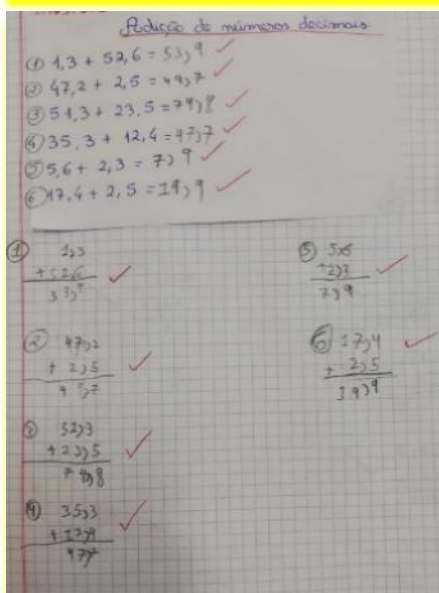 Adição de números decimais
① 1,3 + 52,6 = 53,9
② 47,2 + 2,5 = 49,7
③ 51,3 + 23,5 = 74,8
④ 35,3 + 12,4 = 47,7
⑤ 5,6 + 2,3 = 7,9
⑥ 17,4 + 2,5 = 19,9
① 1,3
+ 52,6
53,9
② 47,2
+ 2,5
③ 51,3
+ 23,5
④ 35,3
+ 12,4
⑤ 5,6
+ 2,3
7,9
⑥ 17,4
+ 2,5
19,9